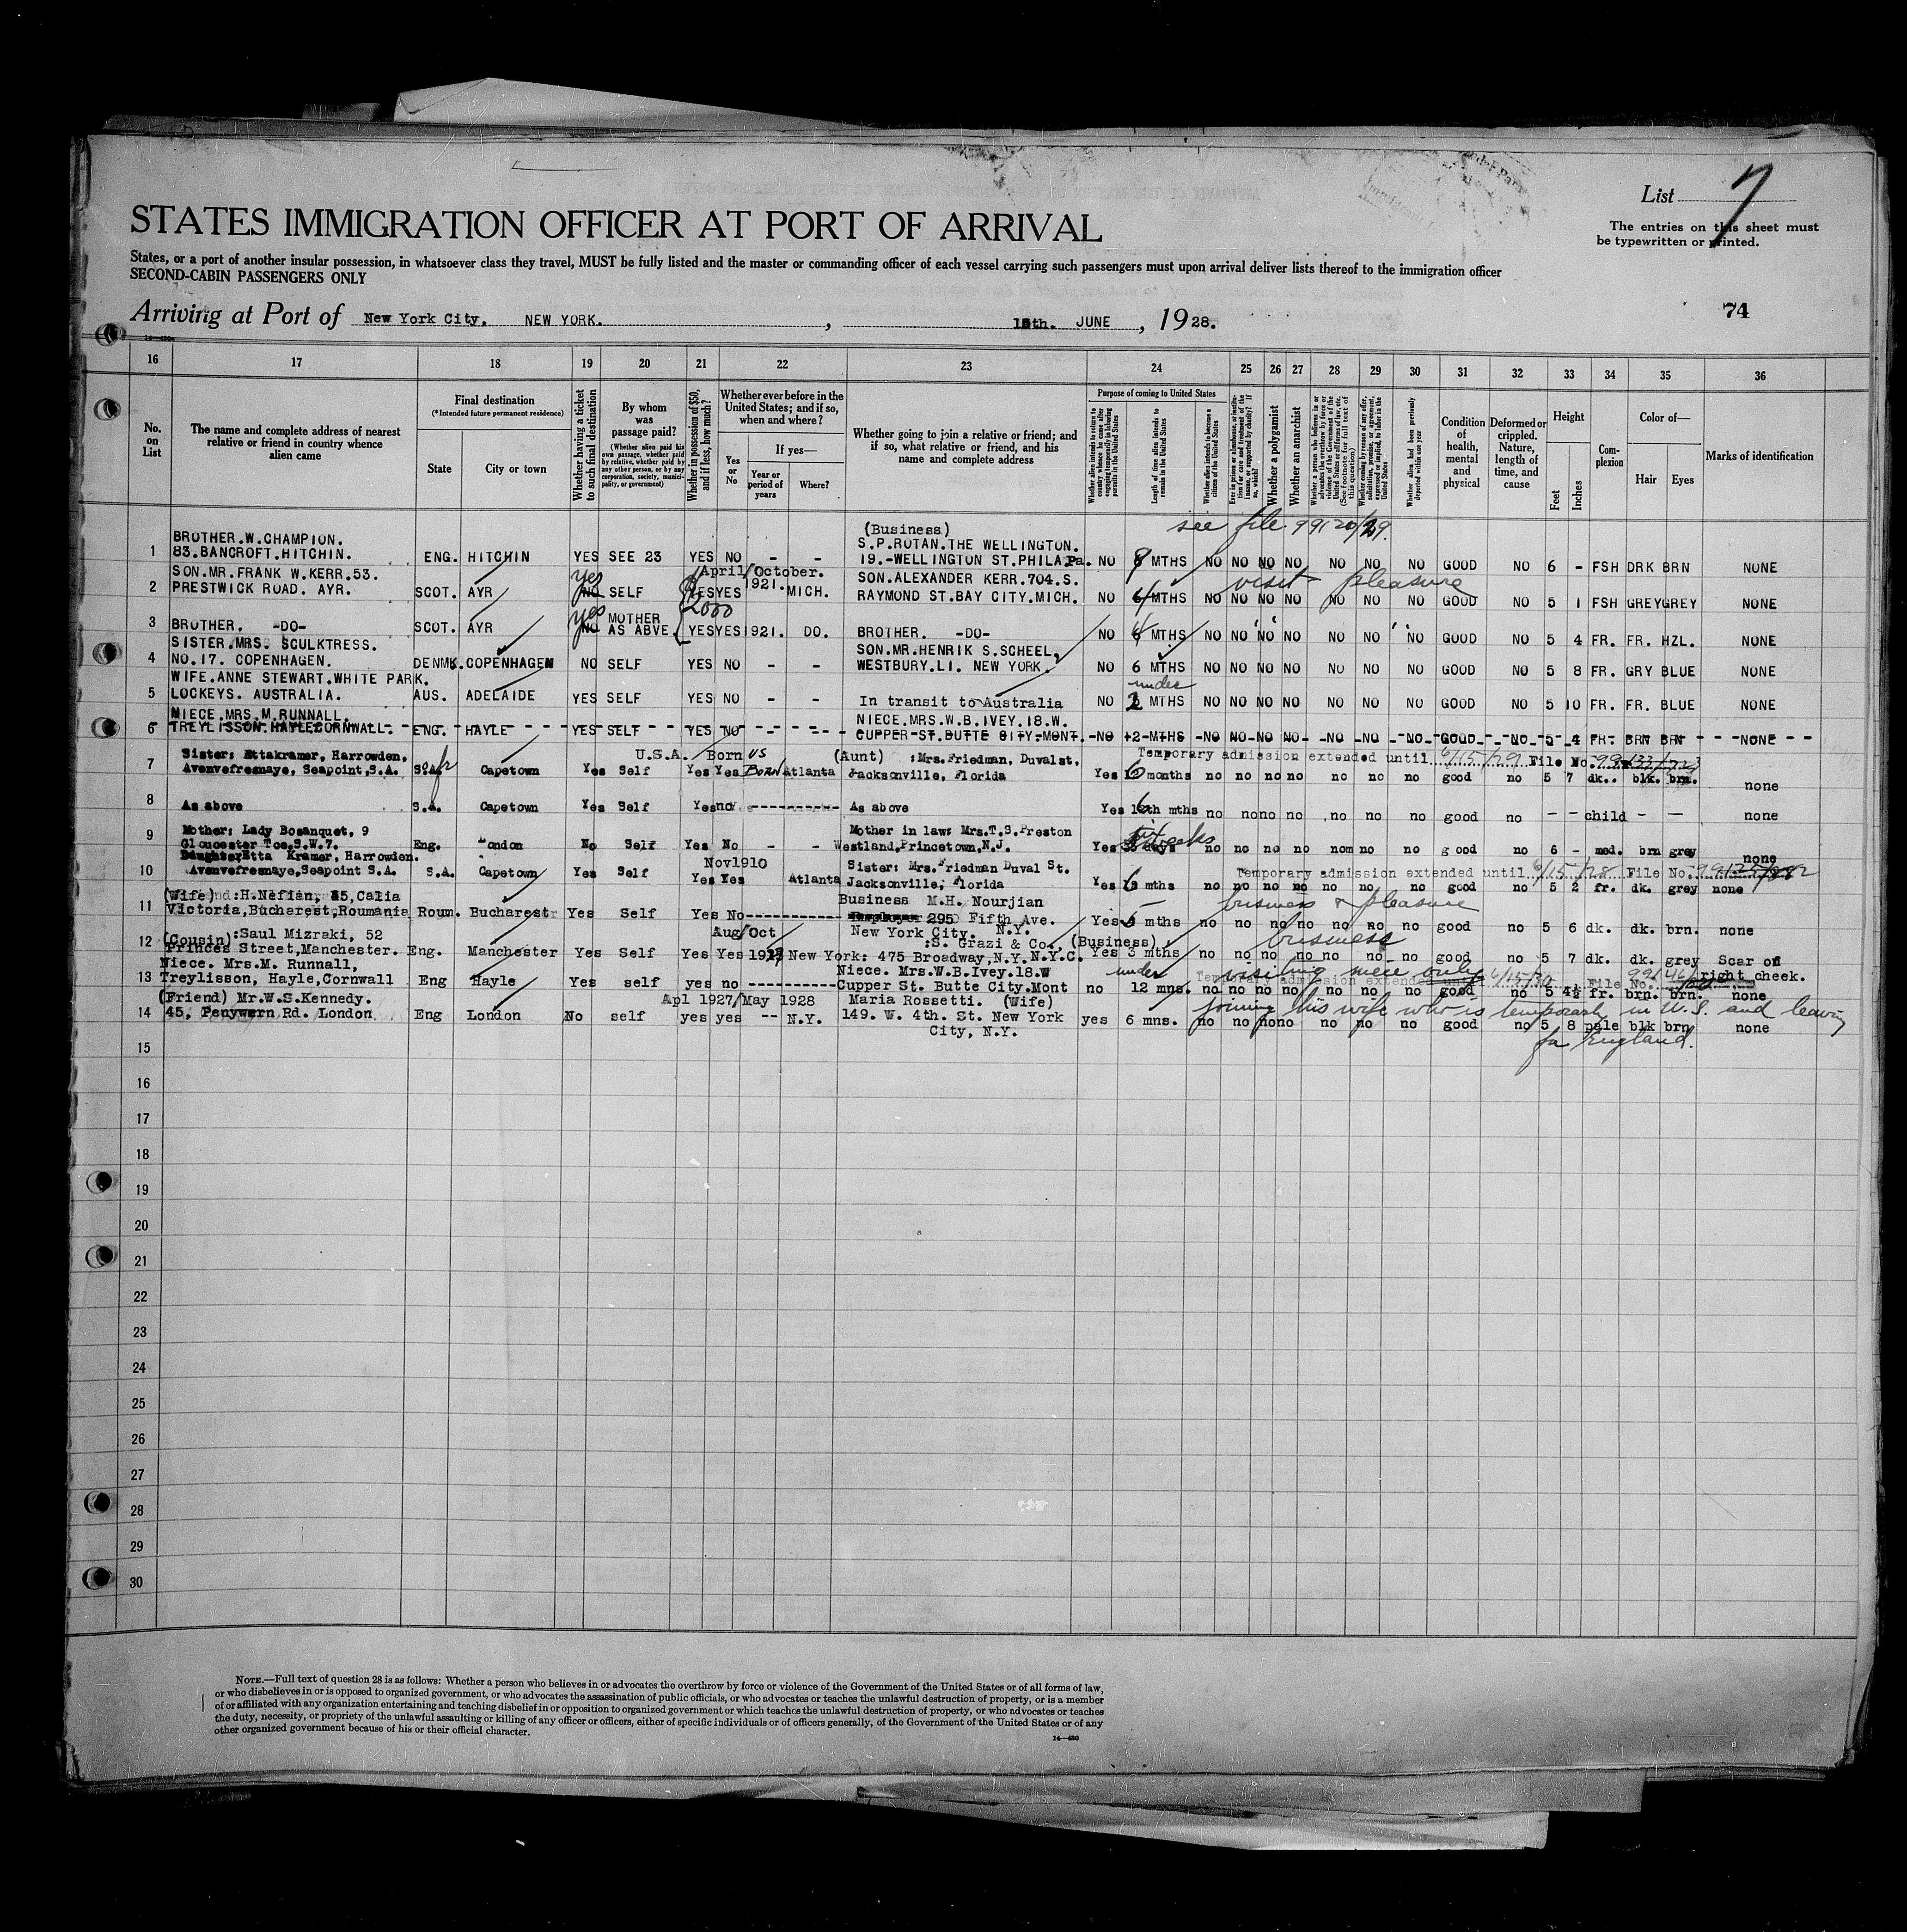 List 7
The entries on this sheet must
be typewritten or printed.
STATES IMMIGRATION OFFICER AT PORT OF ARRIVAL
States, or a port of another insular possession, in whatsoever class they travel, MUST be fully listed and the master or commanding officer of each vessel carrying such passengers must upon arrival deliver lists thereof to the immigration officer
SECOND-CABIN PASSENGERS ONLY
74
Arriving at Port of New York City. NEW YORK. , JUNE , 1928.
16 17 18 19 20 21 22 23 24 25 26 27 28 29 30 31 32 33 34 35 36
No. on List
The name and complete address of nearest relative or friend in country whence alien came
Final destination
(*Intended future permanent residence)
State
City or town
Whether having a ticket to such final destination
By whom was passage paid?
(Whether alien paid his own passage, whether paid by relative, whether paid by any other person, or by any corporation, society, municipality, or government)
Whether in possession of $50, and if less, how much?
Whether ever before in the United States; and if so, when and where?
Yes or No
If yes—
Year or period of years
Where?
Whether going to join a relative or friend; and if so, what relative or friend, and his name and complete address
Purpose of coming to United States
Whether alien intends to return to country whence he came after engaging temporarily in laboring pursuits in the United States
Length of time alien intends to remain in the United States
Whether alien intends to become a citizen of the United States
Whether a polygamist
Whether an anarchist
Whether alien had been previously deported within one year
Condition of health, mental and physical
Deformed or crippled. Nature, length of time, and cause
Height
Feet
Inches
Complexion
Color of—
Hair
Eyes
Marks of identification
see file
BROTHER.W.CHAMPION. (Business)
83.BANCROFT.HITCHIN. S.P.ROTAN.THE WELLINGTON.
1 ENG. HITCHIN YES SEE 23 YES NO - - 19.-WELLINGTON ST.PHILA Pa. NO MTHS NO NO NO NO NO NO NO GOOD NO 6 - FSH DRK BRN NONE
SON.MR.FRANK W.KERR.53. April/October. SON.ALEXANDER KERR.704.S. visit pleasure
2 PRESTWICK ROAD. AYR. SCOT. AYR yes NO SELF YES YES 1921. MICH. RAYMOND ST.BAY CITY.MICH. NO 6 MTHS NO NO NO NO NO NO NO GOOD NO 5 1 FSH GREY GREY NONE
3 BROTHER. -DO- SCOT. AYR yes NO MOTHER AS ABVE 2000 YES YES 1921. DO. BROTHER. -DO- NO MTHS NO NO NO NO NO NO NO GOOD NO 5 4 FR. FR. HZL. NONE
SISTER.MRS. SCULKTRESS. SON.MR.HENRIK S.SCHEEL,
4 NO.17. COPENHAGEN. DENMK. COPENHAGEN NO SELF YES NO - - WESTBURY.L1. NEW YORK. NO 6 MTHS NO NO NO NO NO NO NO GOOD NO 5 8 FR. GRY BLUE NONE
WIFE.ANNE STEWART.WHITE PARK. under
5 LOCKEYS. AUSTRALIA. AUS. ADELAIDE YES SELF YES NO - - In transit to Australia NO 2 MTHS NO NO NO NO NO NO NO GOOD NO 5 10 FR. FR. BLUE NONE
NIECE.MRS.M.RUNNALL. NIECE.MRS.W.B.IVEY.18.W.
6 TREYLISSON.HAYLE CORNWALL ENG. HAYLE YES SELF YES NO CUPPER ST.BUTTE CITY.MONT. NO 12 MTHS NO NO NO NO NO NO NO GOOD NO 5 4 FR. BRN BRN NONE
Sister: Ettakramer, Harrowden, U.S.A. Born US (Aunt) :Mrs.Friedman, Duvalst, Temporary admission extended until 6/15/29 File No.
7 Avenvefresnaye, Seapoint,S.A. S.A. Capetown Yes Self Yes Yes Born Atlanta Jacksonville, Florida Yes 6 months no no no no no no no good no 5 7 dk.. blk. brn. none
8 As above S.A. Capetown Yes Self Yes no As above Yes mths no no no no no no no good no - - child - - none
Mother: Lady Bosanquet, 9 Mother in law: Mrs.T.S.Preston
9 Gloucester Tce,S.W.7. Eng. London No Self Yes No - - Westland,Princetown,N.J. Yes six weeks no no no no no no no good no 6 - med. brn grey none
Daughter,Etta Kramer, Harrowden. Nov1910 Sister: Mrs.Friedman Duval St. Temporary admission extended until File No.
10 Avenvefresnaye,Seapoint S.A. S.A. Capetown Yes Self Yes Yes Atlanta Jacksonville, Florida Yes 6 mths no no no no no no no good no 5 2 fr. dk. grey none
(Wife) :H.Neflin, 85,Calia Business M.H. Nourjian business & pleasure
11 Victoria,Bucharest,Roumania Roum. Bucharest Yes Self Yes No 295 Fifth Ave. New York City. N.Y. Yes 6 mths no no no no no no no good no 5 6 dk. dk. brn. none
(Cousin) :Saul Mizraki, 52 Aug/Oct :S. Grazi & Co., (Business) business
12 Princes Street,Manchester. Eng. Manchester Yes Self Yes Yes New York: 475 Broadway,N.Y.N.Y.C. Yes 3 mths no no no no no no no good no 5 7 dk. dk. grey Scar on right cheek.
Niece. Mrs.M. Runnall, Niece. Mrs.W.B.Ivey.18.W under visiting niece only Temporary admission extended until 6/15/30 File No.
13 Treylisson, Hayle,Cornwall Eng Hayle Yes self yes no Cupper St. Butte City.Mont no 12 mns. no no no no no no no good no 5 4½ fr. brn. brn. none
(Friend) Mr.W.S.Kennedy. Apl 1927/May 1928 Maria Rossetti. (Wife) joining his wife who is temporarily in U.S. and leaving
14 45, Penywern Rd. London Eng London No self yes yes -- N.Y. 149. W. 4th. St. New York City, N.Y. yes 6 mns. no no no no no no no good no 5 8 pale blk brn none
for England.
15
16
17
18
19
20
21
22
23
24
25
26
27
28
29
30
NOTE.—Full text of question 28 is as follows: Whether a person who believes in or advocates the overthrow by force or violence of the Government of the United States or of all forms of law,
or who disbelieves in or is opposed to organized government, or who advocates the assassination of public officials, or who advocates or teaches the unlawful destruction of property, or is a member
of or affiliated with any organization entertaining and teaching disbelief in or opposition to organized government or which teaches the unlawful destruction of property, or who advocates or teaches
the duty, necessity, or propriety of the unlawful assaulting or killing of any officer or officers, either of specific individuals or of officers generally, of the Government of the United States or of any
other organized government because of his or their official character.
14—430